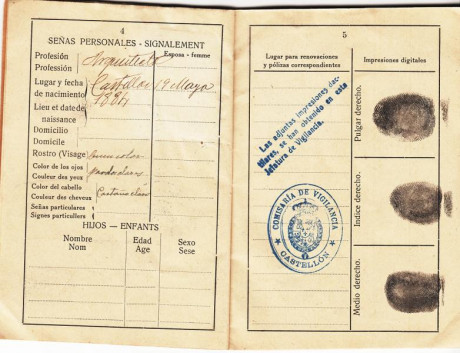 4
SEÑAS PERSONALES - SIGNALEMENT
Esposa - femme
Profesión Arquitecto
Profession
Lugar y fecha Castellón 19 Mayo
de nacimiento 1884
Lieu et date de
naissance
Domicilio
Domicile
Rostro (Visage) buen color
Color de los ojos pardo claros
Couleur des yeux
Color del cabello Castaño claro
Couleur des cheveux
Señas particulares
Signes particullers
HIJOS — ENFANTS
Nombre Edad Sexo
Nom Age Sese
5
Lugar para renovaciones
y pólizas correspondientes
Impresiones digitales
Las adjuntas impresiones dac-
tilares, se han obtenido en esta
Jefatura de Vigilancia.
COMISARÍA DE VIGILANCIA
CASTELLÓN
Pulgar derecho.
Indice derecho.
Medio derecho.